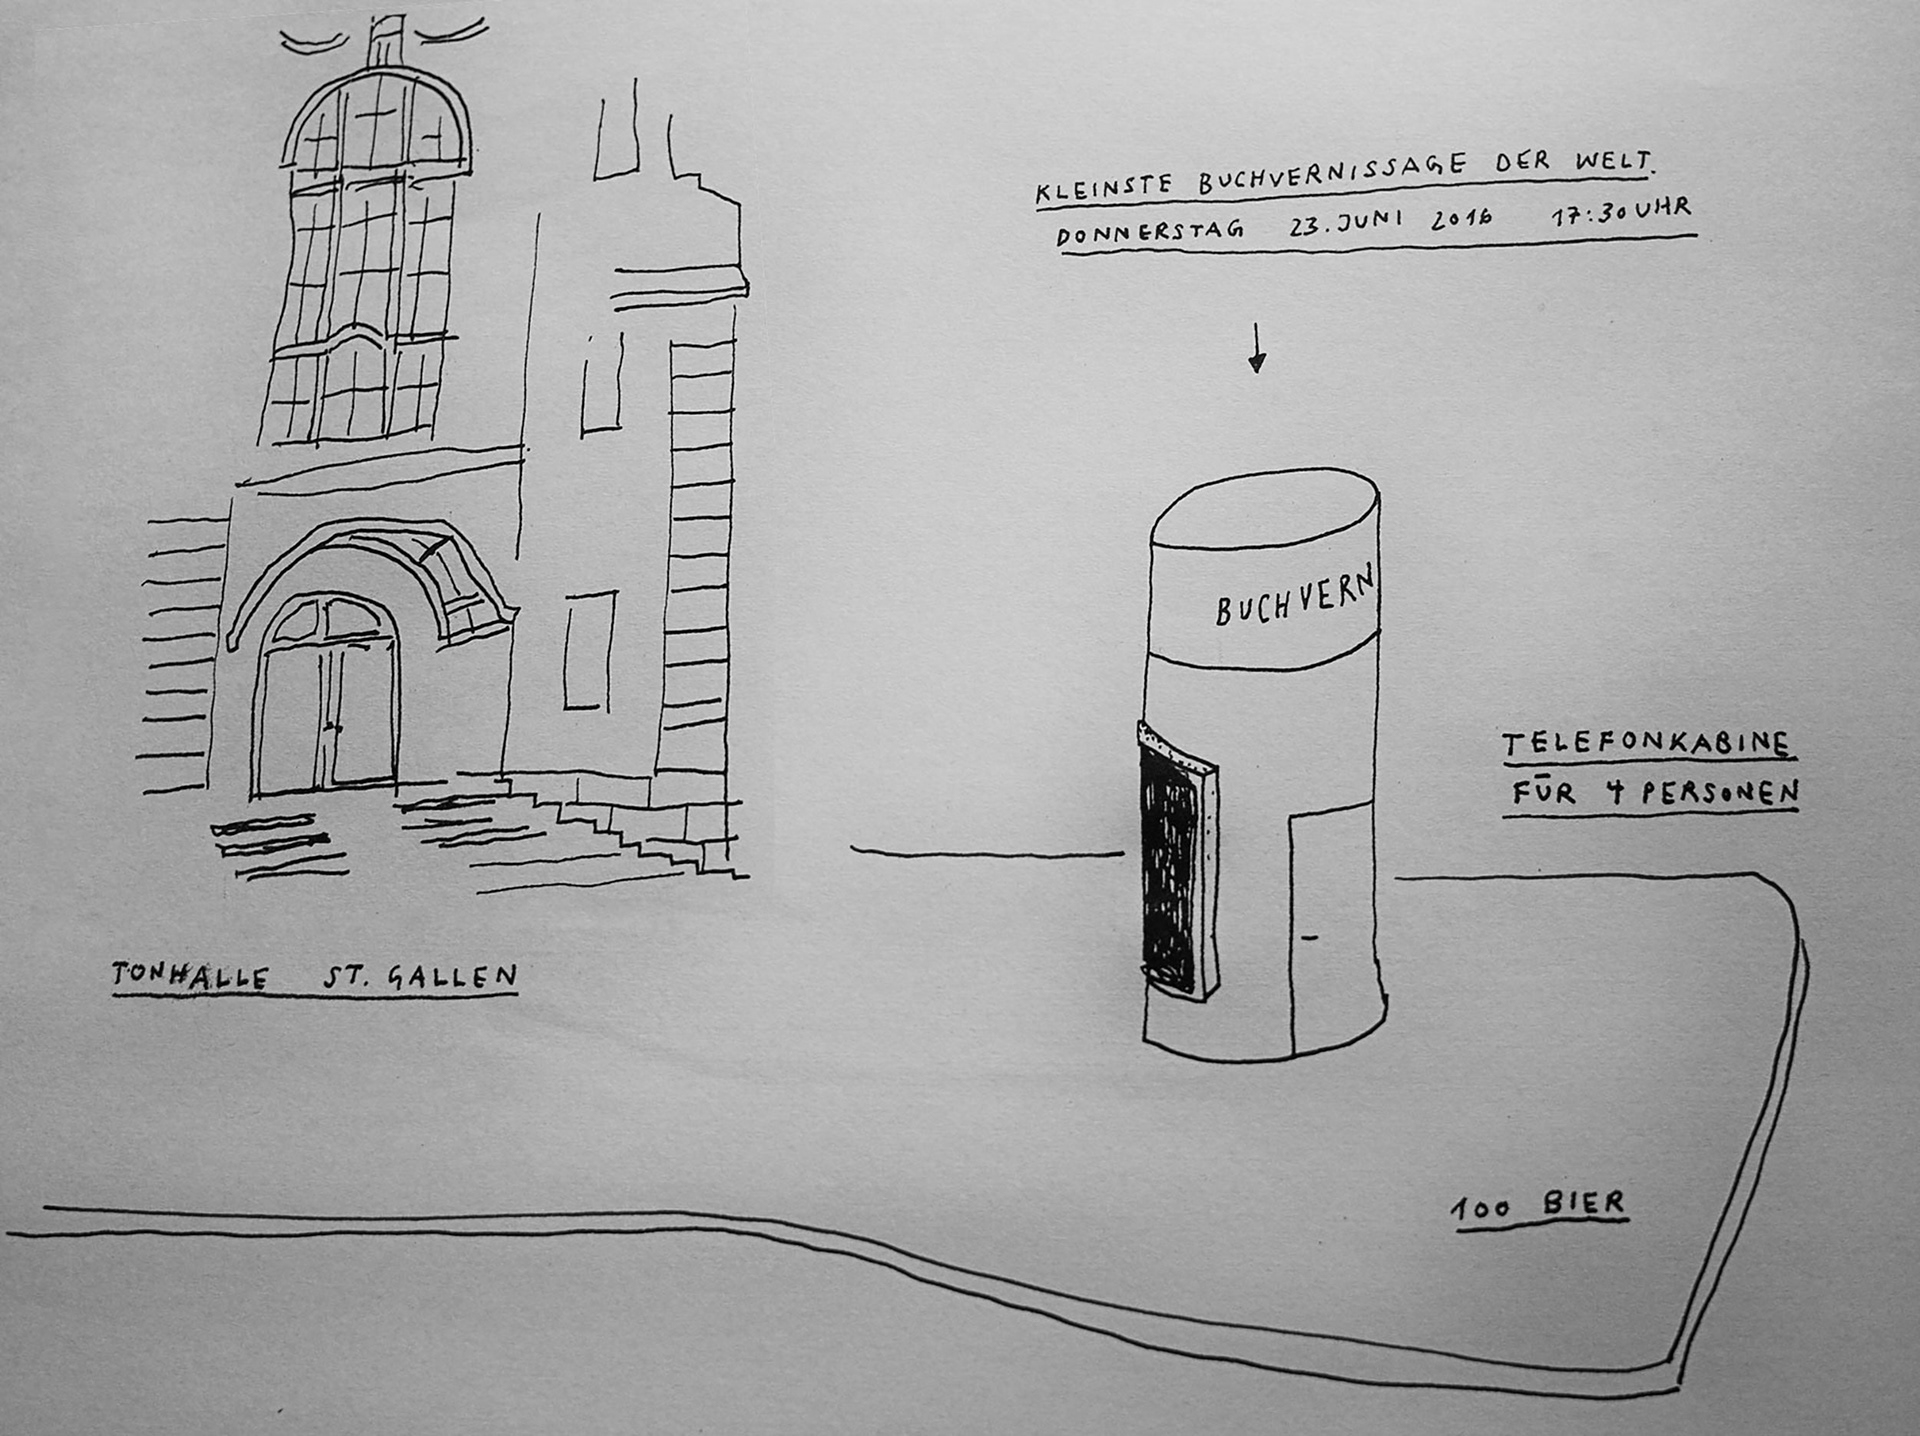 KLEINSTE BUCHVERNISSAGE DER WELT.
DONNERSTAG 23. JUNI 2016 17:30 UHR
BUCHVERN
TELEFONKABINE
FÜR 4 PERSONEN
TONHALLE ST. GALLEN
100 BIER